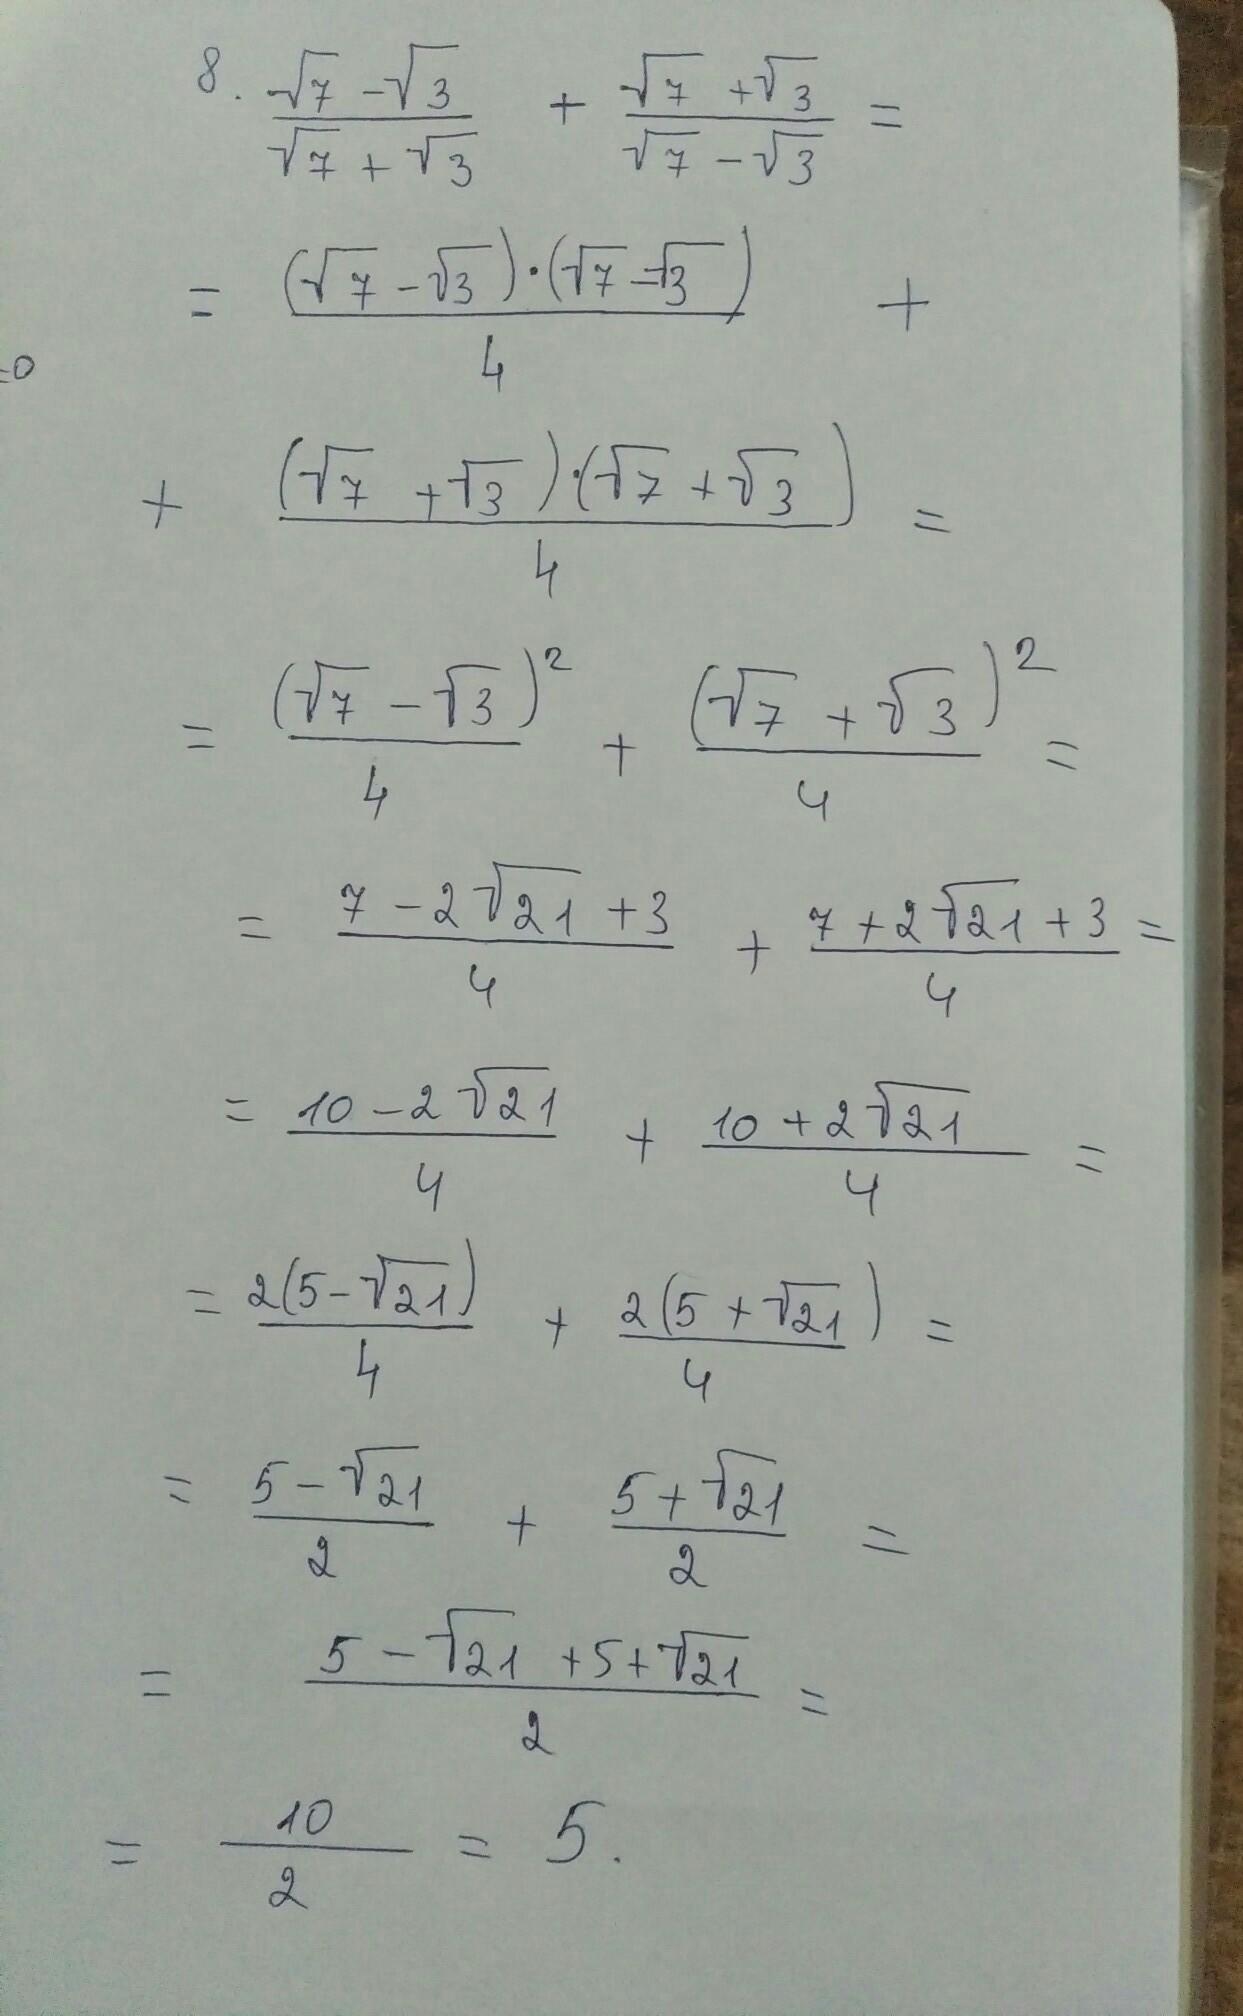 8. (√7 - √3)/(√7 + √3) + (√7 + √3)/(√7 - √3) =
= ((√7 - √3)·(√7 - √3))/4 +
=0
+ ((√7 + √3)·(√7 + √3))/4 =
= (√7 - √3)²/4 + (√7 + √3)²/4 =
= (7 - 2√21 + 3)/4 + (7 + 2√21 + 3)/4 =
= (10 - 2√21)/4 + (10 + 2√21)/4 =
= 2(5 - √21)/4 + 2(5 + √21)/4 =
= (5 - √21)/2 + (5 + √21)/2 =
= (5 - √21 + 5 + √21)/2 =
= 10/2 = 5.